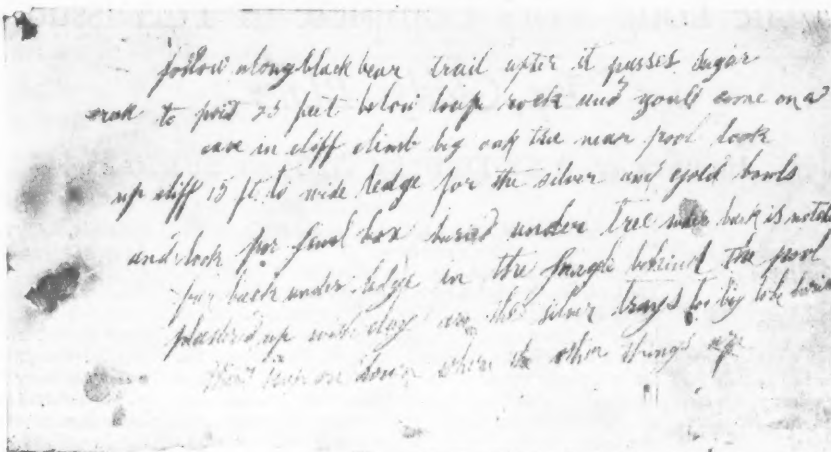 follow along black bear trail after it passes sugar
to point 25 feet below loap rock and youll come on a
cave in cliff climb big oak tree near pool look
up cliff 15 ft to wide ledge for the silver and gold bowls
and look for jewel box buried under tree near back is notched
far back under ledge in the behind the pool
plastered up with clay are the silver trays to big to be buried
then turn on down where the other things